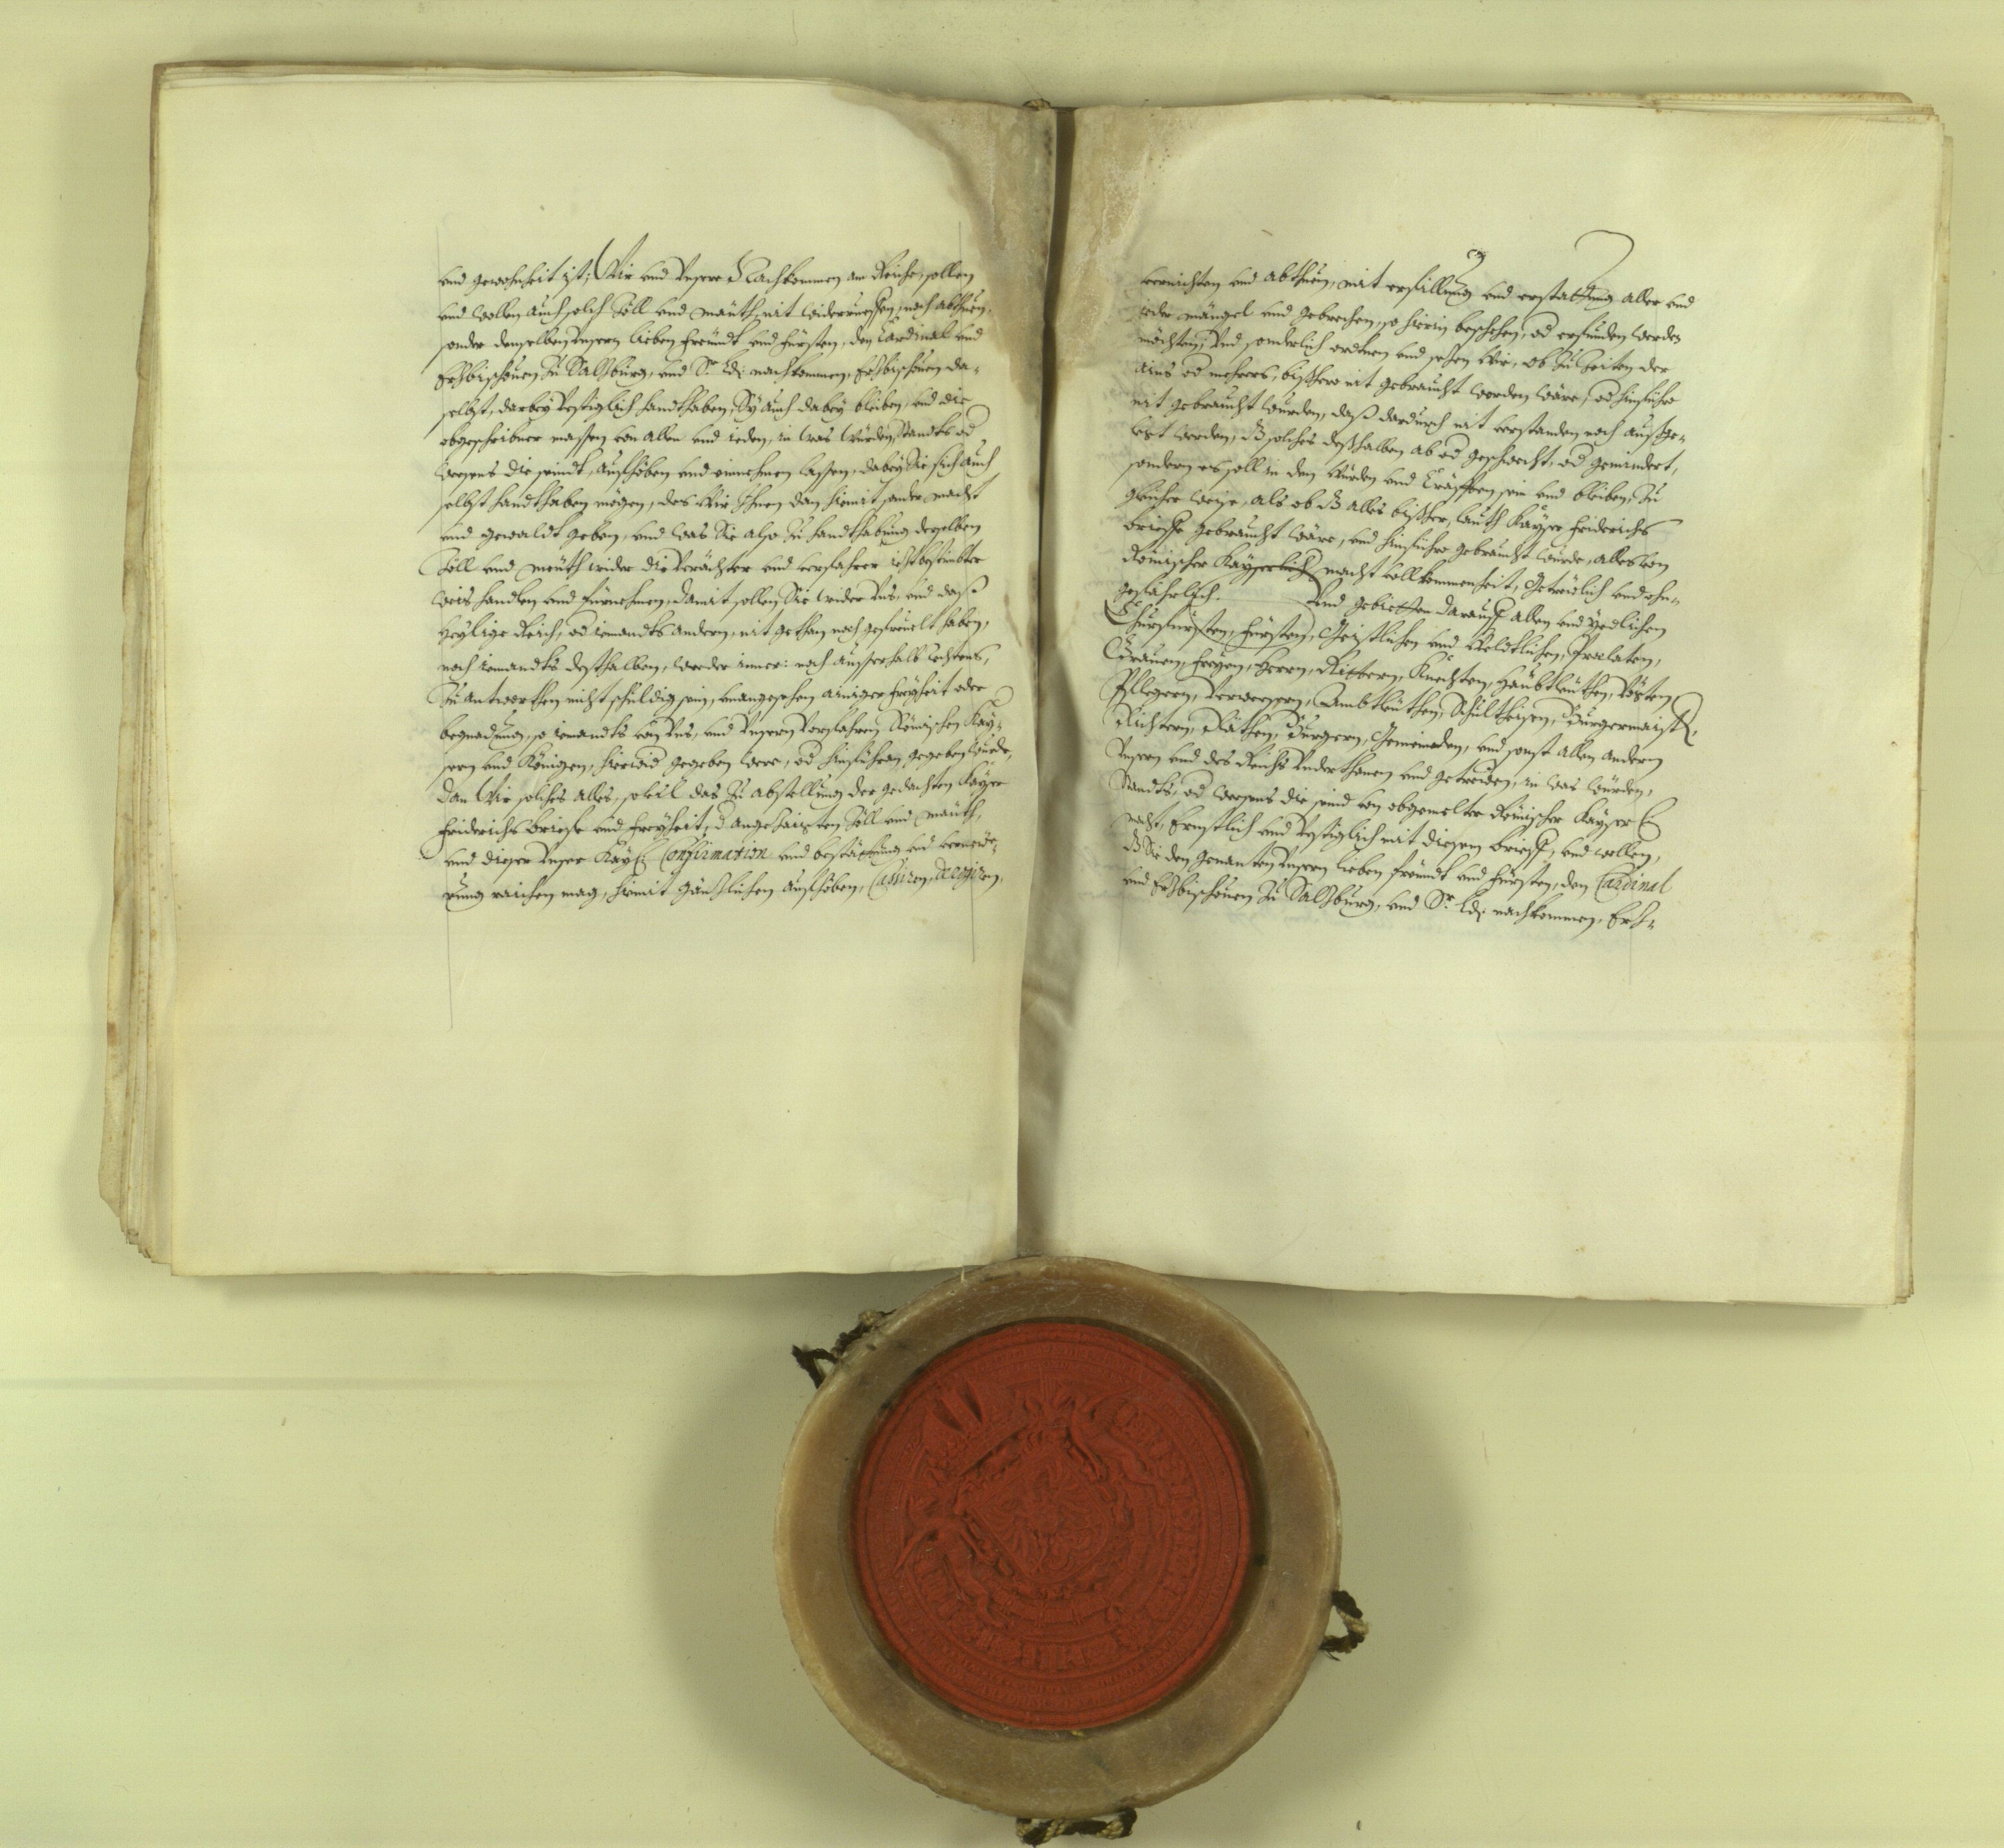 und gewohnheit ist, Wir und Unsere Nachkommen am Reiche, sollen
und wollen auch solch Zöll und mauth nit widerrueffen, noch abthuen,
sonder demselben Unserm lieben freundt und fürsten, den Cardinal und
Erzbischouen zu Salzburg, und Sr. Ldn: nachkommen, Erzbischouen da-
selbst, darbey Vestiglich handthaben, Sy auch dabey bleiben, und die
obgeschribner massen von allen und ieden, in was würden, Standts od
weesens die seindt, aufheben und einnehmen lassen, dabey Sie sich auch
selbst handthaben mögen, des Wir Ihnen dan hiemit sonder macht
und gewaldt geben, und was Sie also zu handthabung derselben
Zöll und mauth wider die Verächter und verfahrer iezt bestimbter
weis handlen und fürnehmen, damit sollen Sie wider Uns, und daß
Heylige Reich, od iemandts andern, nit gethan noch gefreuelt haben,
noch iemandts desthalben, weeder inner: noch ausserhalb rechtens,
zu antworthen nicht schuldig sein, unangesehen ainiger freyheit oder
begnadung, so iemandts von Uns, und Unsern Vorfahren Römischen Kay-
sern und Königen, hierwid gegeben were, od hinfüran gegeben wurde,
Dan Wir solches alles, souil das zu abstellung der gedachten Kayser
Friderichs brieffe und freyheit, d angehaigten Zöll und mauth,
und dieser Unser Kay: Confirmation und bestättung und verneüe-
rung raichen mag, hiemit gänzlichen aufheben, Cassiren, derogiren,
vernichten und abthuen, mit erfüllung und erstattung aller und
ieder mängel und gebrechen, so hierin beschehen, od erfunden werden
möchten, Und sonderlich ordnen und sezen Wir, ob zu zeiten der
ains od mehrers, bißhero nit gebraucht worden wäre, od hinführo
nit gebraucht wurden, daß dardurch nit verstanden noch außge-
legt werden, dz solches deßhalben ab od geschwecht, od gemindert,
sondern es soll in den würden und Cräfften sein und bleiben, zu
gleicher weise, als ob dz alles bißher, lauth Kayser Friderichs
brieffe gebraucht wäre, und hinführo gebraucht wurde, alles von
Römischer Kayserlich macht vollkommenheit, getreulich und ohn-
geföhrlich. Und gebietten darauff allen und Yedlichen
Churfürsten, Fürsten, Geistlichen und Weldtlichen, Praelaten,
Grauen, Freyen, Herrn, Rittern, Knechten, Haubtleuthen, Vögten,
Pflegern, Verweesern, Ambtleuthen, Schultheisen, Burgermaistern,
Richtern, Räthen, Burgern, Gemeinden, und sonst allen andern
Unsern und des Reichs Underthanen und getreuen, in was würden,
Standts, od weesens die seind von obgemelter Römischer Kayser:
macht, Ernstlich und Vestiglich mit diesem brieff, und wollen,
dz Sie den genanten Unsern lieben freundt und Fürsten, den Cardinal
und Erzbischouen zu Salzburg, und Sr. Ldn: nachkommen, Erz-